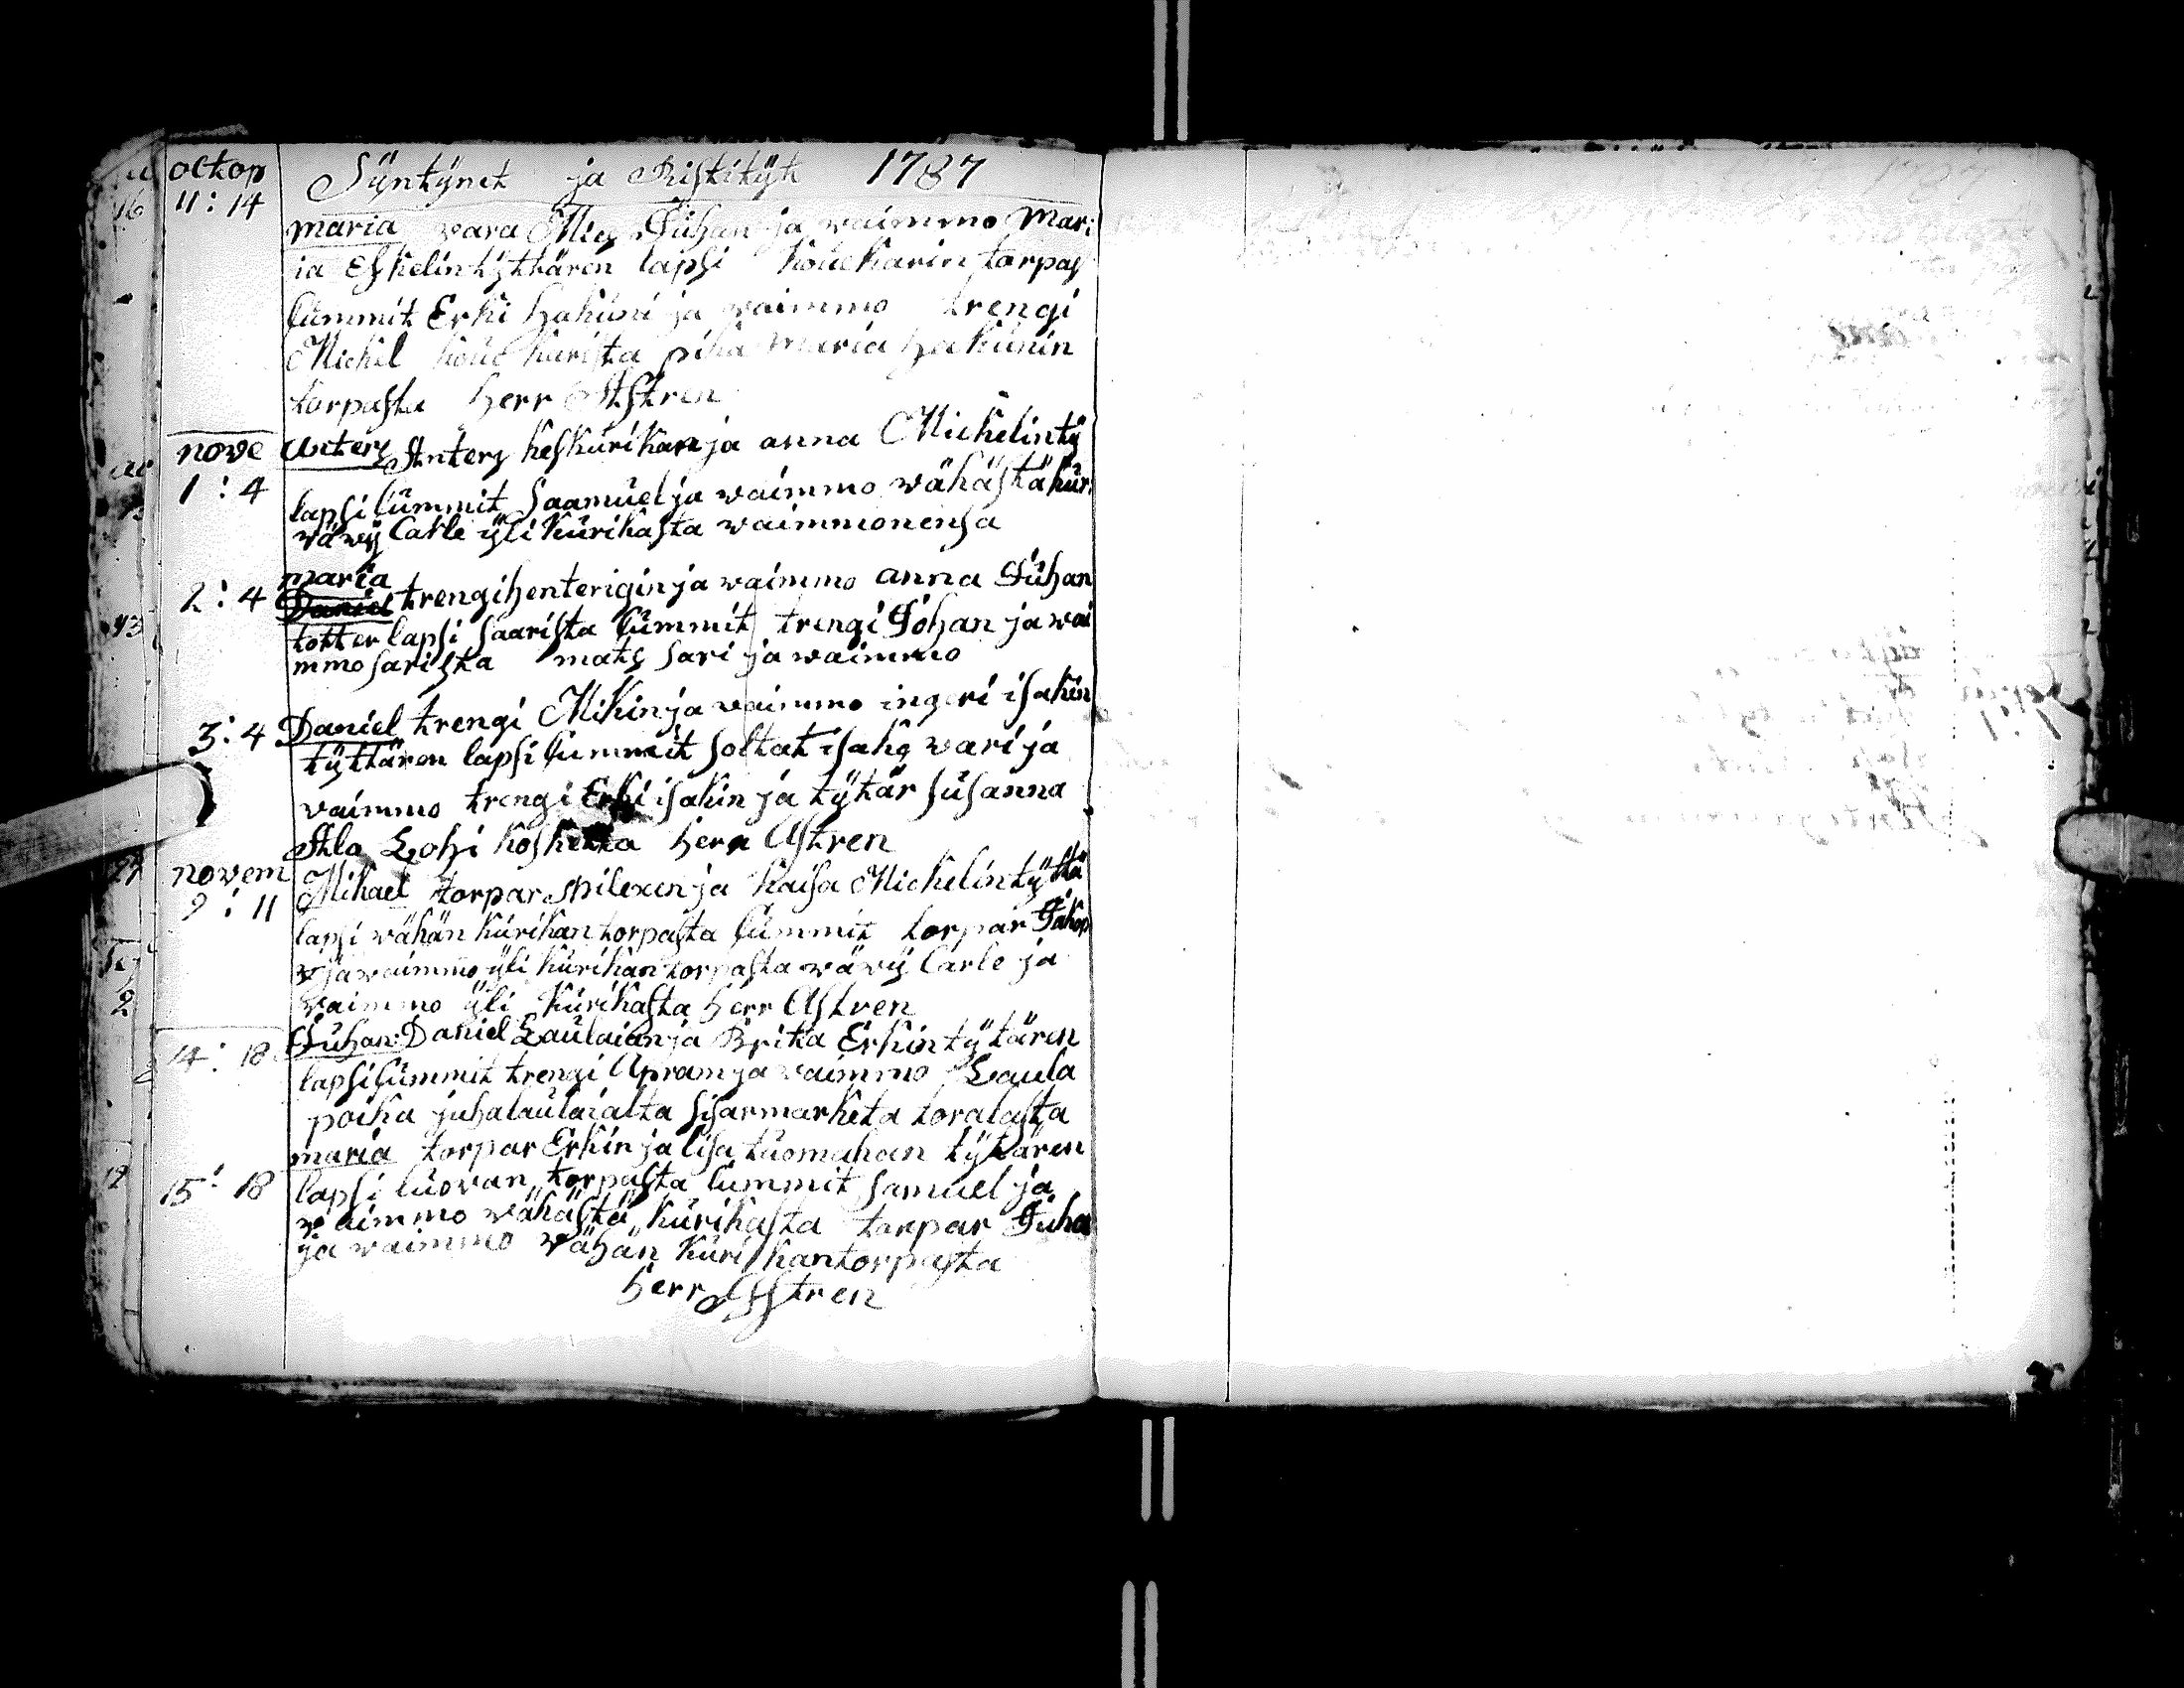 octop Sÿntÿnet ja Ristitÿt 1787
11:14
maria vara Mies Juhan ja waimmo mari
ia Eskelin tÿttären lapsi kouekarin torpas
lummit Erki hakuni ja waimmo trengi
Michel koue karista pika maria hakunin
torpasta herr Astren
nove Anters Anters keskurikan ja anna Michelin tÿ
1:4 lapsi lummit Saamuel ja waimmo wähästä kuri
wäwÿ Carle ÿli kurikasta waimmonensa
maria
2:4 Daniel trengi henterigin ja waimmo anna Juhan
totter lapsi saarista lummit trengi Johan ja wai
mmo sarista mats sari ja waimmo
3:4 Daniel trengi Mikin ja waimmo ingeri isakin
tÿttären lapsi lummit soltat isahq wari ja
vaimmo trengi Erki isakin ja tÿtär susanna
Ala Lohi koskelta herr Astren
novem Mihael torpar spilexen ja kaisa Michelin tÿttä
9:11 lapsi wähän kurikan torpasta lummit torpar Jakop
ja waimmo ÿli kurikan torpasta wäwÿ Carle ja
waimmo ÿli kurikasta herr Astren
14:18 Juhan Daniel Laulaian ja Brita Erkin tÿtären
lapsi lummit trengi Apram ja waimmo Laula
poika juha laulaialta sisar marketa loralasta
maria torpar Erkin ja lisa tuomahan tÿtären
15:18 lapsi luovan torpasta lummit samuel ja
waimmo wähästä kurikasta torpar Juha
ja waimmo wähän kurikan torpasta
herr Astren